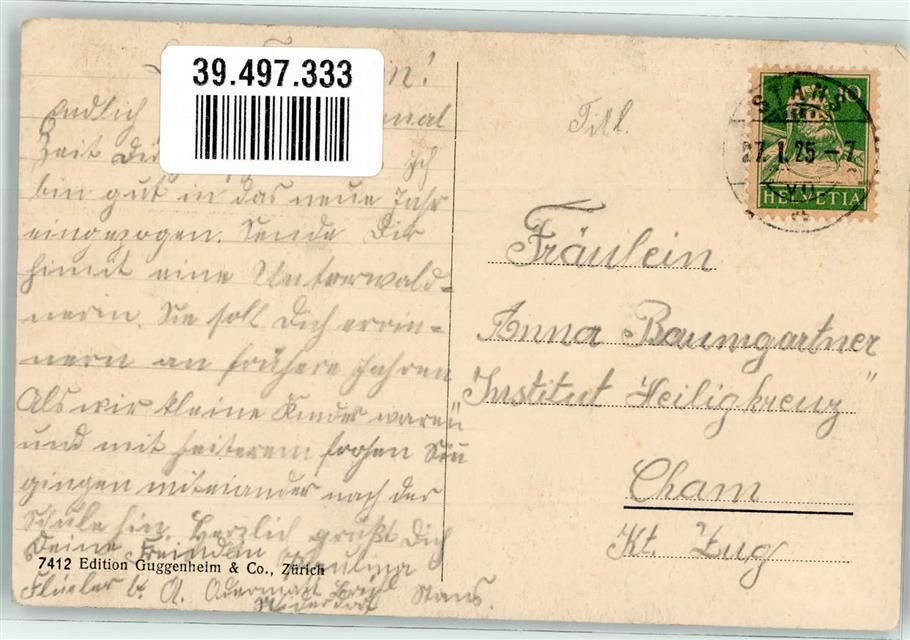 39.497.333
Endlich mal
Zeit
Ich
bin gut in das neue Jahr
eingezogen. Sende Dir
himit eine Unterwald-
nerin. Sie soll Dich errin-
nern an frühere Jahren
Als wir kleine Kinder waren
und mit heiterem frohen Sinn
gingen miteiander nach der
Schule hin. Herzlich grüßt Dich
Deine Freindin Paulina
7412 Edition Guggenheim & Co., Zürich
Flüeler b. A. Odermatt
Niederdorf Stans.
Titl.
STANS 10
27.I.25-7
HELVETIA
Fräulein
Anna Baumgartner
Institut Heiligkreuz"
Cham
Kt. Zug